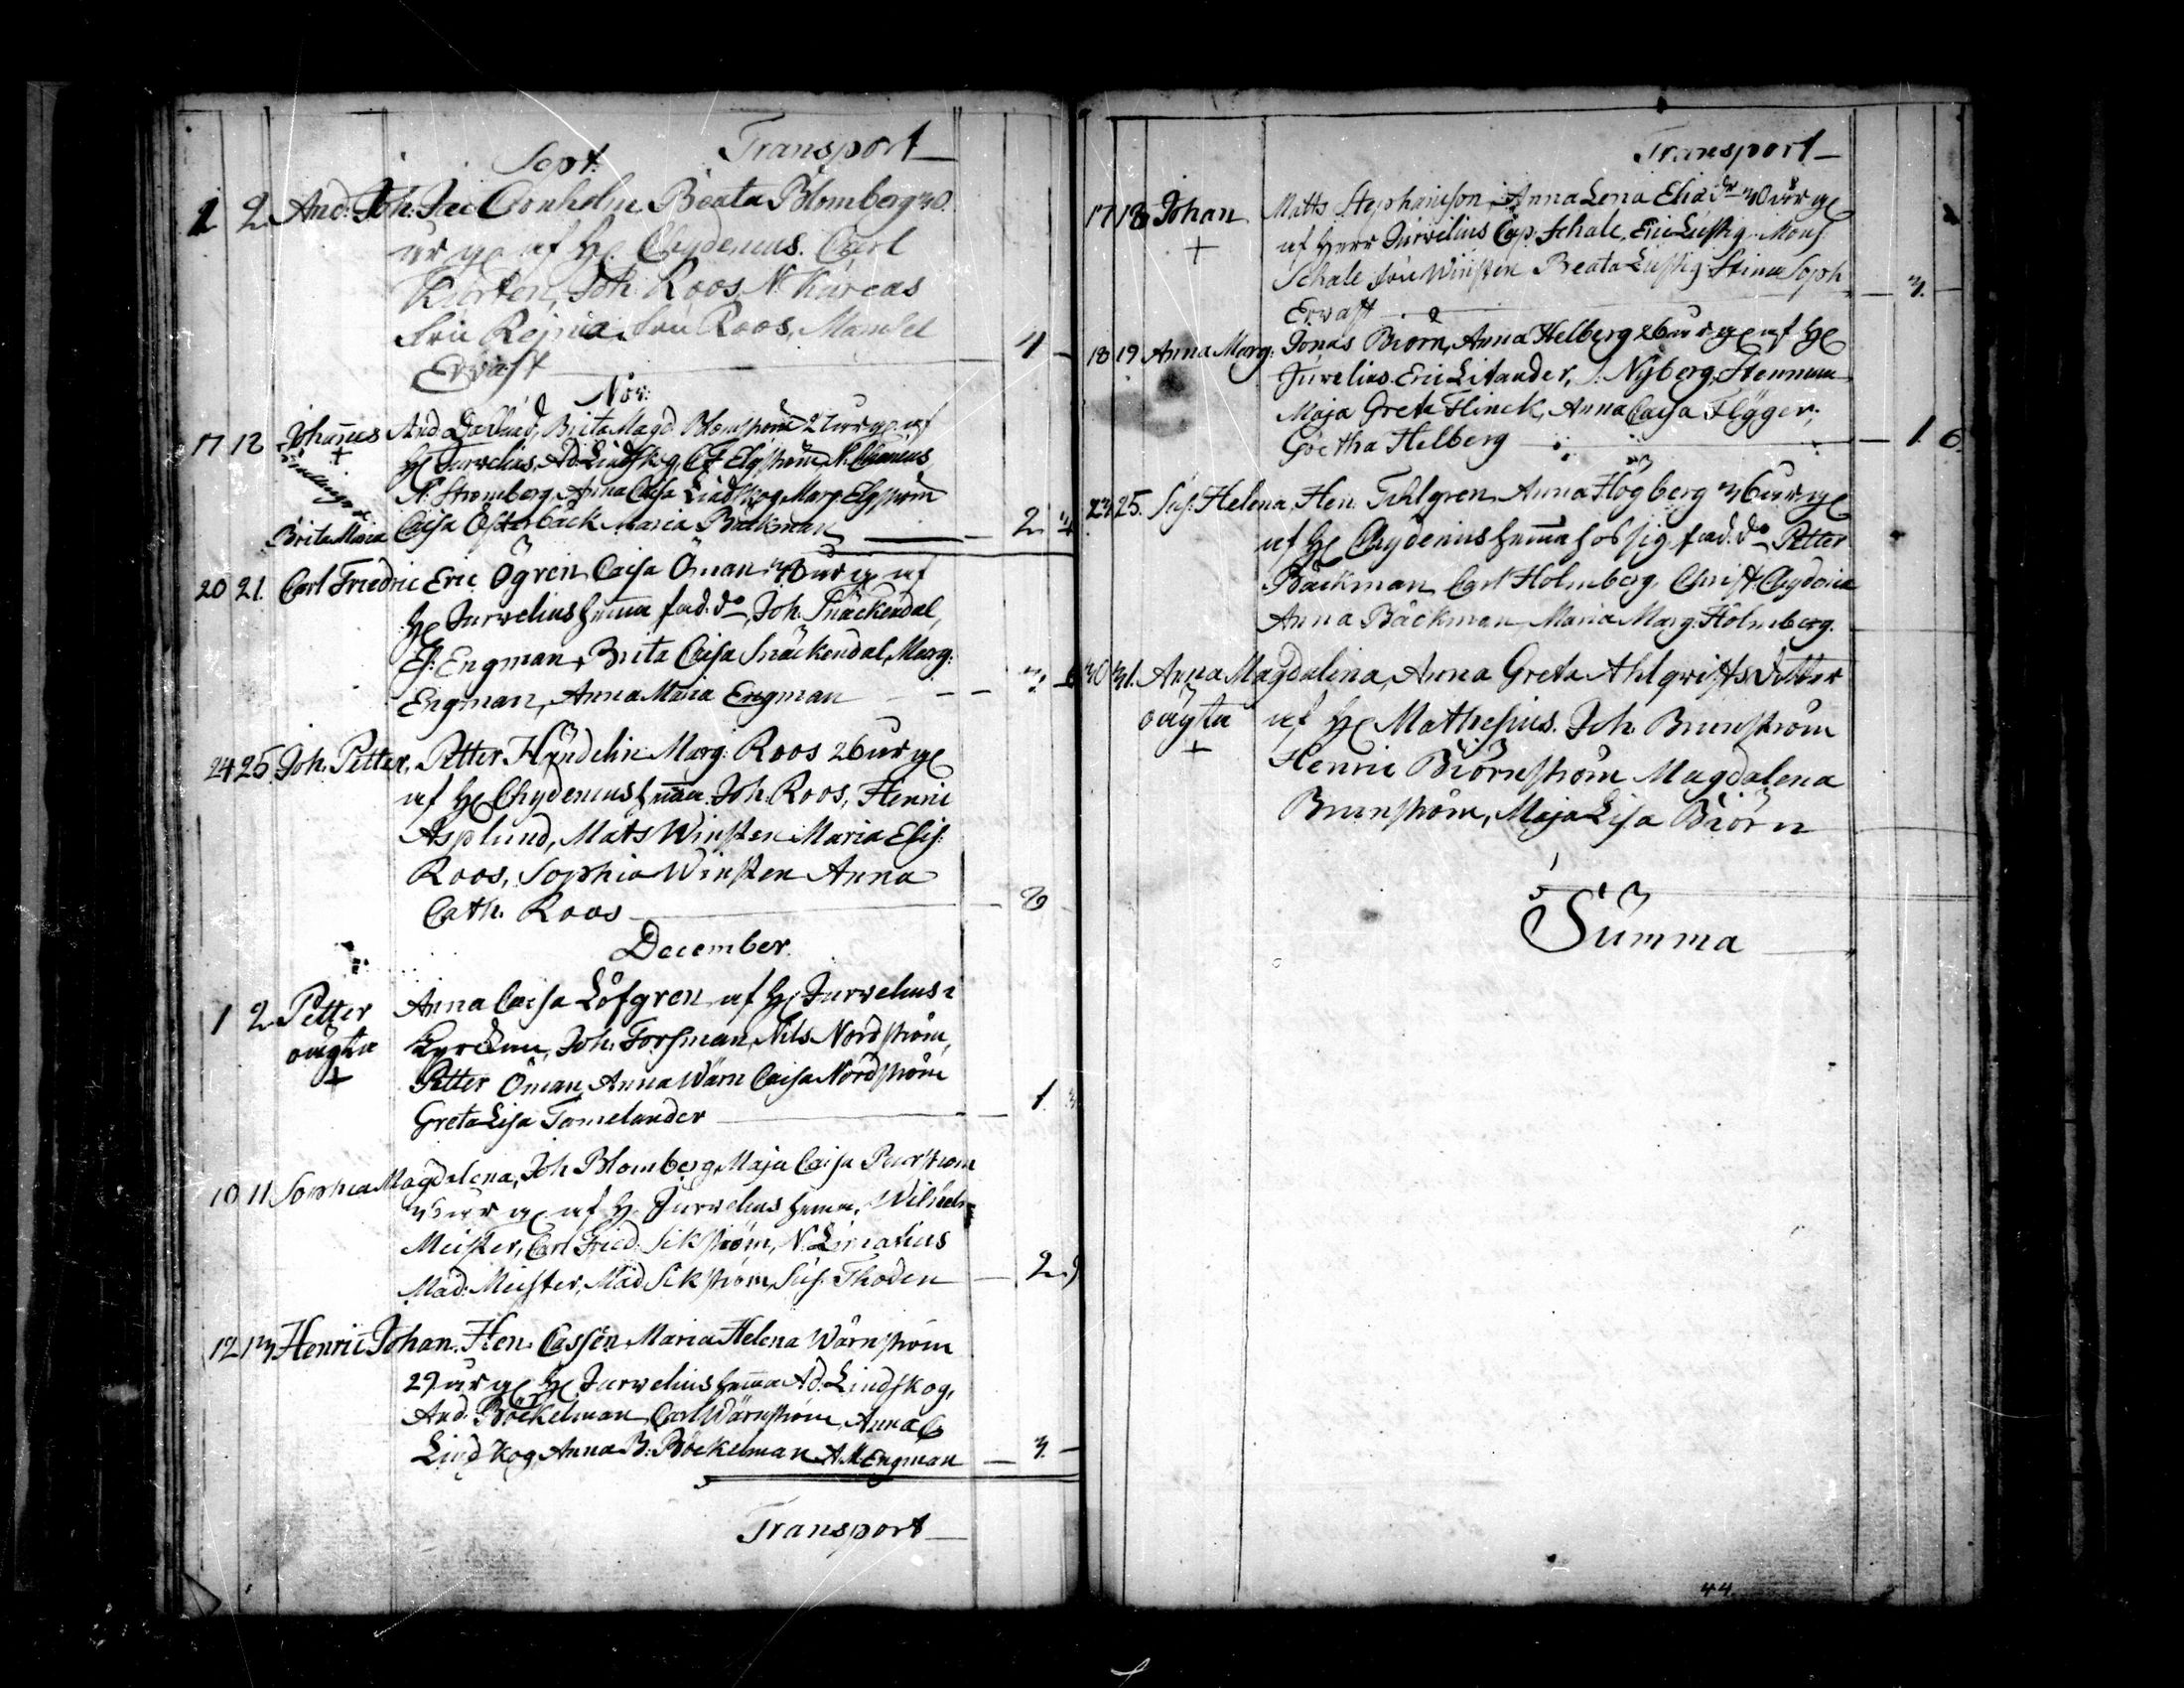 Transport
Sept:
1 2 And: Joh: Jac Cronholm Beata Blomberg 30.
år g. af H. Chydenius. Carl
Kjørten, Joh. Roos N. Kareas
Fru Regina Fru Roos, Mamsel
Ervast 4 -
Nov:
17 18 Johannes And Brita Magd Blomström 27 år g. af
H. Jurvelius, Ad: Lindskog, C F Elgström N. Chenius
N. Stromberg, Anna Caisa Lindskog, Marg. Elgström
Brita Maria Caisa Österback Maria Bäckman 2
20 21. Carl Friedric Eric Ögren Caisa Öman 30 år g. af
H. Jurvelius hemma fad. do Joh. Snäckendal,
El: Engman, Brita Caisa Snäckendal, Marg:
Engman, Anna Maria Engman
24 25 Joh. Petter, Petter Händelin Marg: Roos 26 år g.
af H. Chydenius hemma. Joh. Roos, Henric
Asplund, Mats Winsten Maria Elis:
Roos, Sophia Winsten Anna
Cath. Roos
December
1 2 Petter Anna Caisa Löfgren af H. Jurvelius i
oägta Kyrckan, Joh. Forsman, Nils Nordström,
+ Petter Öman, Anna Wärn Caisa Nordström
Greta Lisa Tomelander 1.
10 11 Sophia Magdalena, Joh Blomberg, Maja Caisa
år g. af H. Jurvelius hemma, Wilhelm
Meister, Carl Fried: Sikström, N. Limatius
Mad: Meister, Mad Sikström, Sus: Thoden 2
12 13 Henric Johan. Hen. Cassén Maria Helena Wärnström
29 år g. H. Jurvelius hemma Ad: Lindskog,
And. Böckelman, Carl Wärnström, Anna C
Lindskog, Anna B: Böckelman A M Engman 3. -
Transport
Transport
17 18 Johan Matts Stephansson, Anna Lena Elias dr 30 år g.
+ af Herr Jurvelius Cap: Schale, Eric Lustig Mons
Schale Fru Winsten Beata Lustig Stina Soph
Ervast 3. -
18 19 Anna Marg: Jonas Biörn, Anna Helberg 26 år g. af H.
Jurvelius. Eric Litander, J. Nyberg,
Maja Greta Flinck, Anna Caisa Flygger,
Goetha Helberg 1. 6
23 25. Sus: Helena, Hen. Tahlgren Anna Högberg 36 år g.
af H. Chydenius hemma hos sig fad. do Petter
Bäckman Carl Holmberg, Christ: Chydenia
Anna Bäckman Maria Marg: Holmberg.
30 31. Anna Magdalena, Anna Greta Ahlqvists dotter
oägta af H. Mathesius. Joh. Brunström
+ Henric Biörnström Magdalena
Brunström, Maja Lisa Biörn
Summa
44